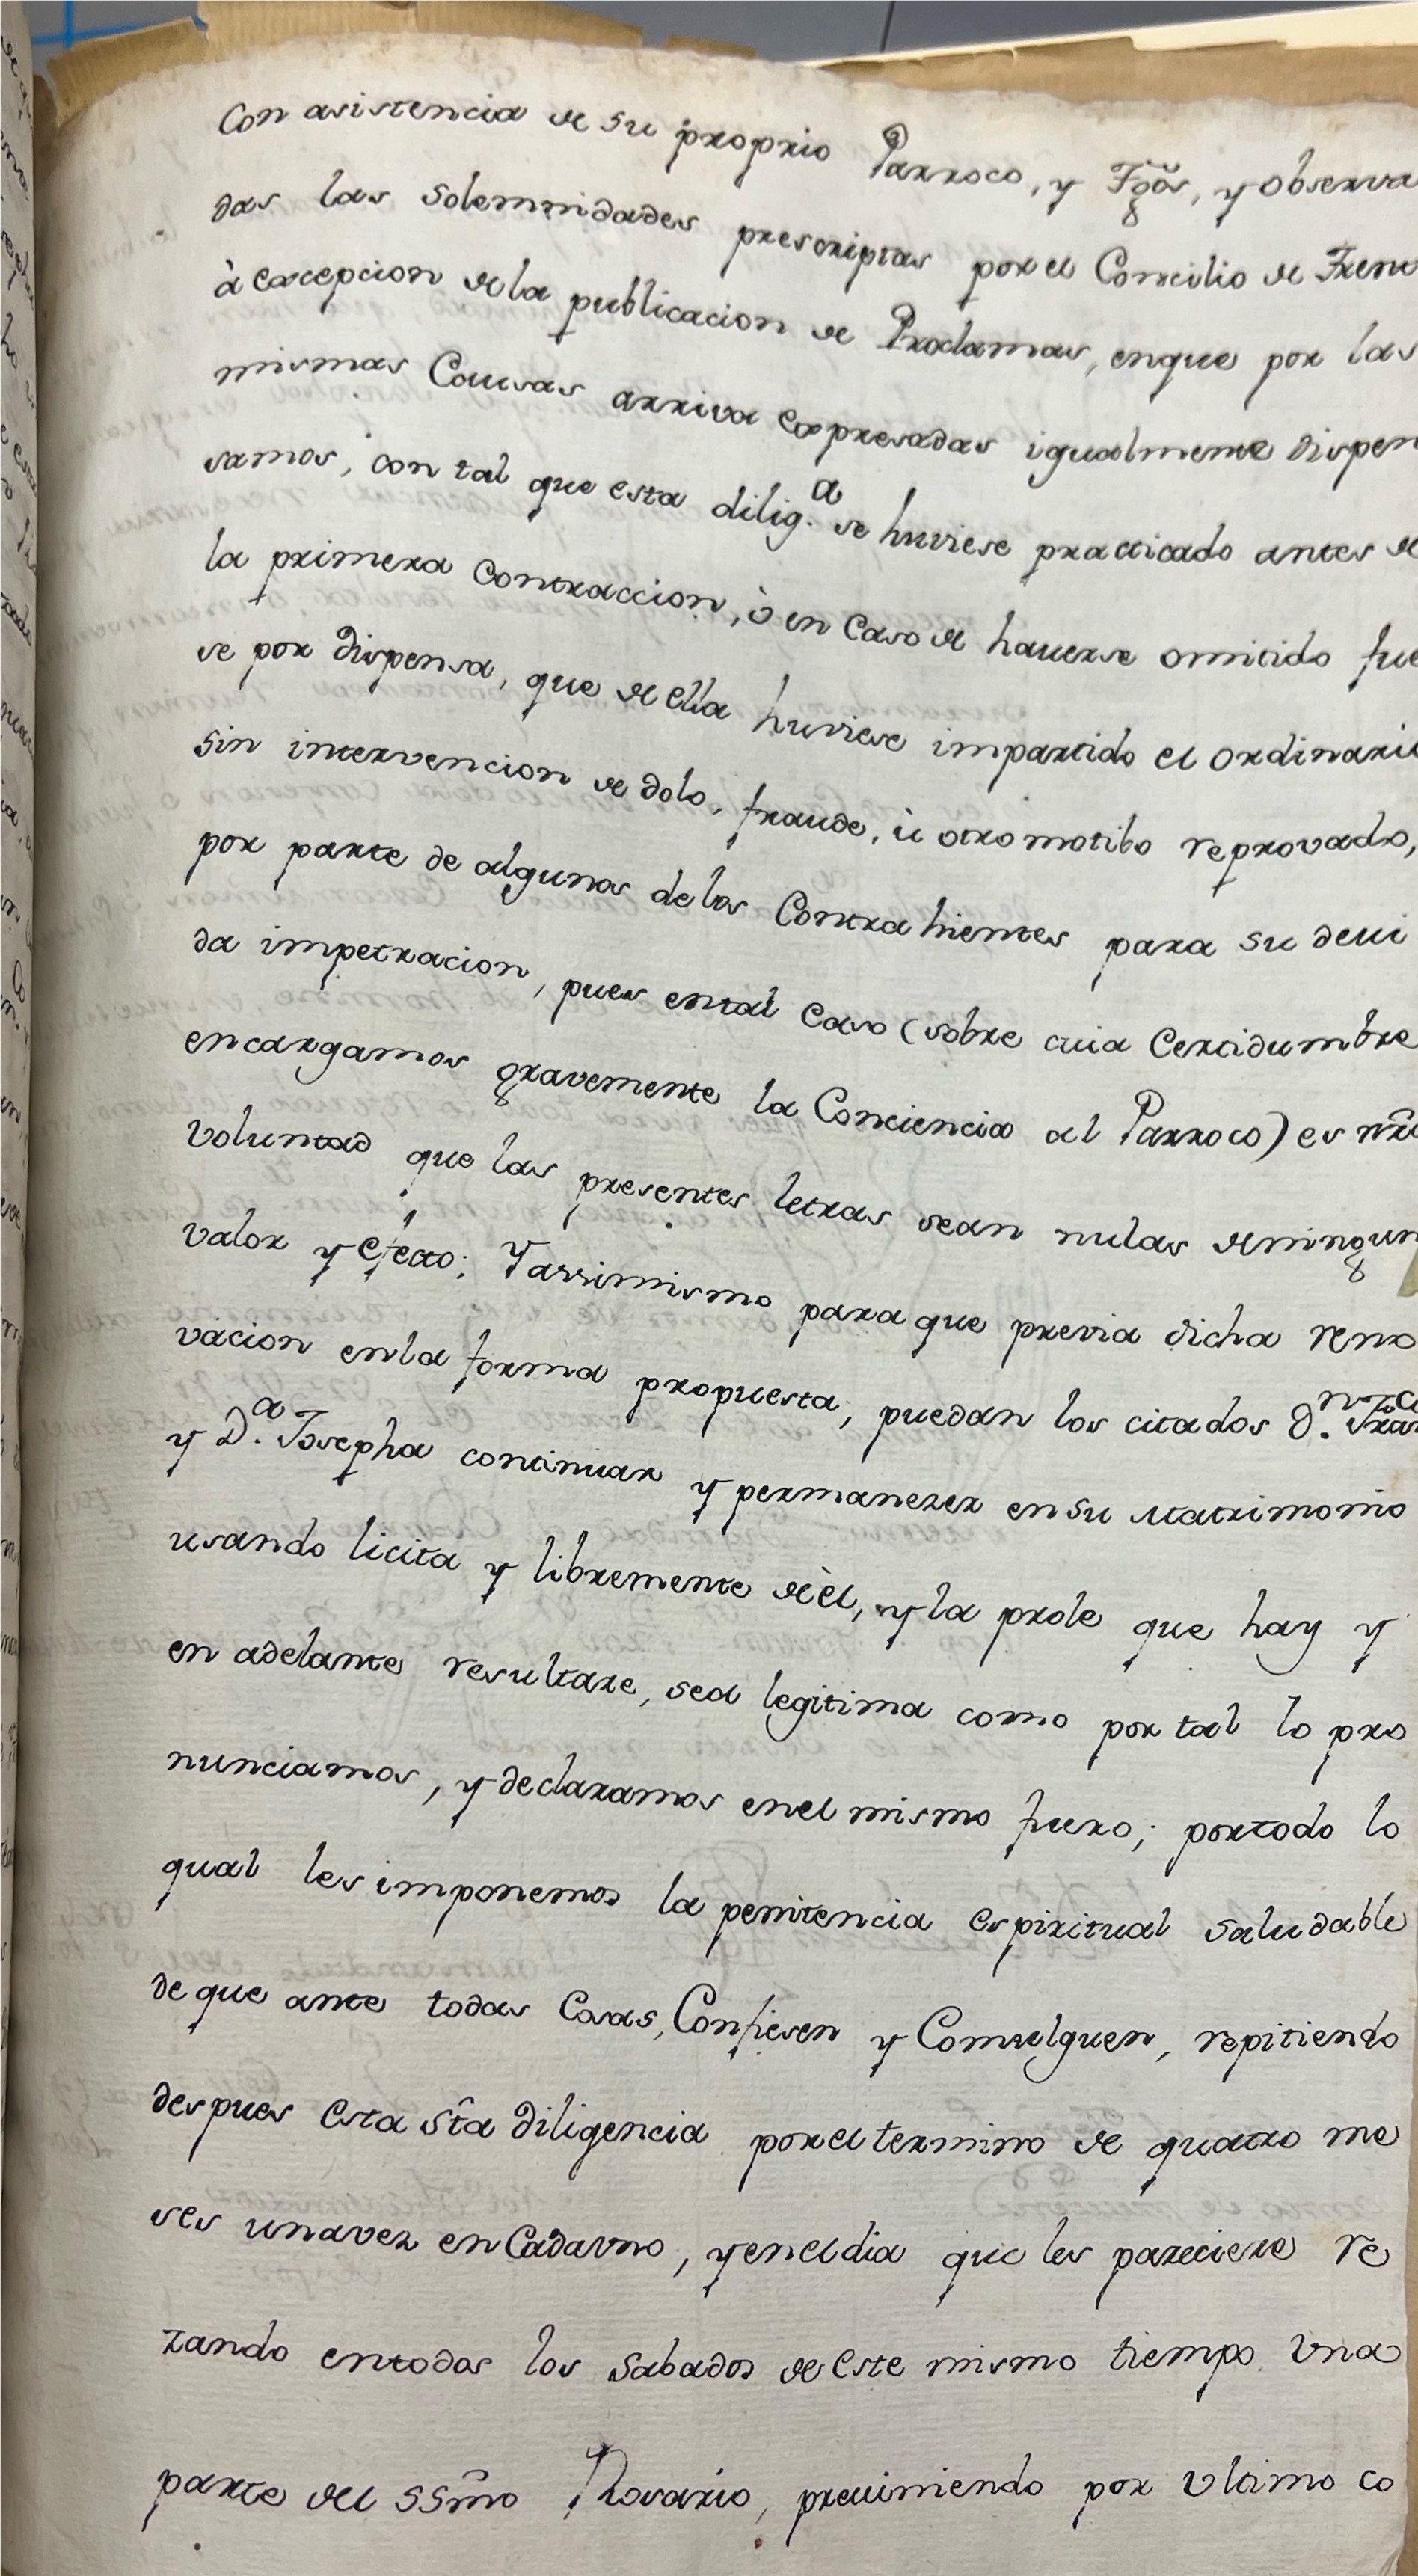 con asistencia de su proprio Parroco, y Tgõs, y observa
das las solemnidades prescriptas por el Concilio de Trent
à excepcion de la publicacion de Proclamas, enque por las
mismas Causas arriva expresadas igualmente dispen
samos, con tal que esta dilig.ª se huviese practicado antes de
la primera contraccion, ò en caso de hauerse omitido fue
se por dispensa, que de ella huviese impartido el ordinario
sin intervencion de dolo, fraude, ù otro motibo reprovado,
por parte de algunos de los Contrahientes para su deui
da impetracion, pues ental Caso (sobre cuia Certidumbre
encargamos gravemente la Conciencia al Parroco) es nrã
voluntad que las presentes letras sean nulas deningun
valor y efecto; Y assimismo para que previa dicha reno
vacion enla forma propuesta, puedan los citados D.n Fran.co
y D.ª Josepha continuar y permanezer en su Matrimonio
usando licita y libremente de èl, y la prole que hay y
en adelante resultare, sea legitima como por tal lo pro
nunciamos, y declaramos enel mismo fuero; portodo lo
qual les imponemos la penitencia espiritual saludable
de que ante todas Cosas, Confiesen y Comulguen, repitiendo
despues esta stã diligencia por el termino de quatro me
ses unavez en Cadauno, y enel dia que les pareciere re
zando entodos los sabados de este mismo tiempo una
parte del SSmõ Rosario, preuiniendo por ultimo co